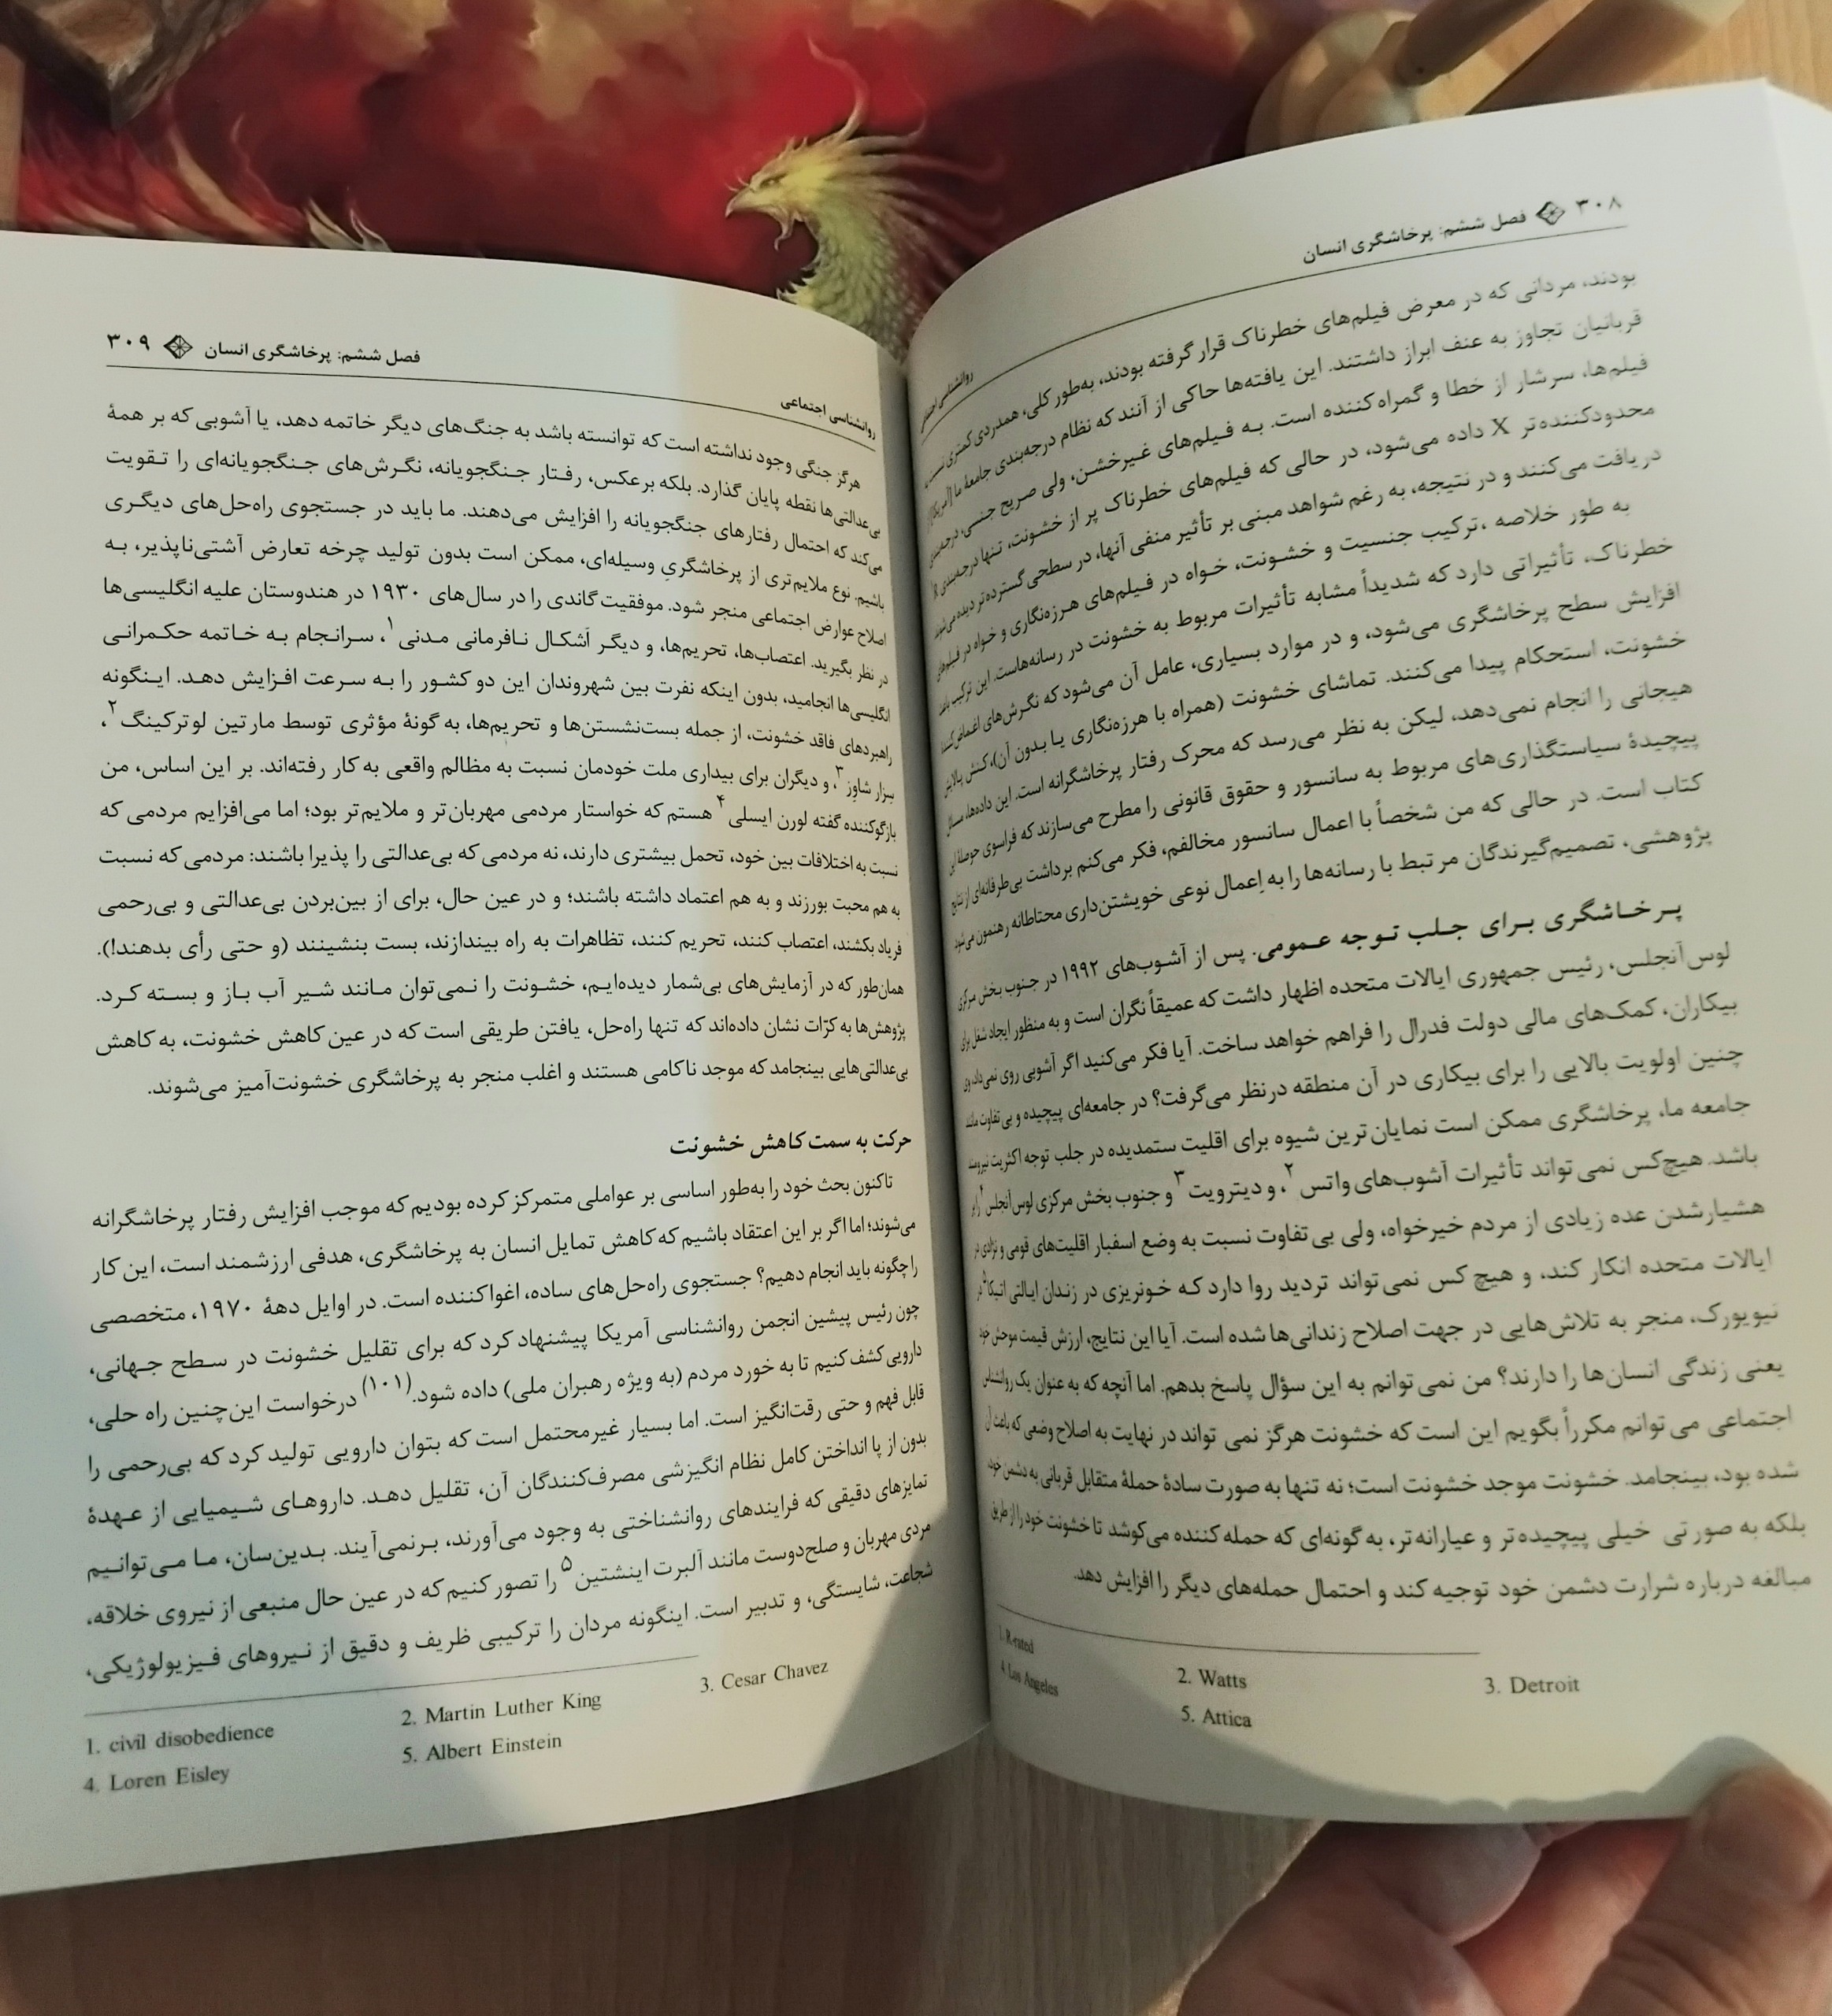 ۳۰۸ فصل ششم: پرخاشگری انسان
روانشناسی اجتماعی
بودند، مردانی که در معرض فیلم‌های خطرناک قرار گرفته بودند، به‌طور کلی، همدردی کمتری نسبت به
قربانیان تجاوز به عنف ابراز داشتند. این یافته‌ها حاکی از آنند که نظام درجه‌بندی جامعهٔ ما [آمریکا]
فیلم‌ها، سرشار از خطا و گمراه‌کننده است. به فیلم‌های غیرخشن، ولی صریح جنسی، درجه‌بندی
محدودکننده‌تر X داده می‌شود، در حالی که فیلم‌های خطرناک پر از خشونت، تنها درجه‌بندی R
دریافت می‌کنند و در نتیجه، به رغم شواهد مبنی بر تأثیر منفی آنها، در سطحی گسترده‌تر دیده می‌شوند.
به طور خلاصه، ترکیب جنسیت و خشونت، خواه در فیلم‌های هرزه‌نگاری و خواه در فیلم‌های
خطرناک، تأثیراتی دارد که شدیداً مشابه تأثیرات مربوط به خشونت در رسانه‌هاست. این ترکیب باعث
افزایش سطح پرخاشگری می‌شود، و در موارد بسیاری، عامل آن می‌شود که نگرش‌های اغماض‌کنندهٔ
خشونت، استحکام پیدا می‌کنند. تماشای خشونت (همراه با هرزه‌نگاری یا بدون آن)، کنش پالایش
هیجانی را انجام نمی‌دهد، لیکن به نظر می‌رسد که محرک رفتار پرخاشگرانه است. این داده‌ها، مسائل
پیچیدهٔ سیاستگذاری‌های مربوط به سانسور و حقوق قانونی را مطرح می‌سازند که فراسوی حوصلهٔ این
کتاب است. در حالی که من شخصاً با اعمال سانسور مخالفم، فکر می‌کنم برداشت بی‌طرفانه‌ای از نتایج
پژوهشی، تصمیم‌گیرندگان مرتبط با رسانه‌ها را به اِعمال نوعی خویشتن‌داری محتاطانه رهنمون می‌شود.
پرخاشگری برای جلب توجه عمومی. پس از آشوب‌های ۱۹۹۲ در جنوب بخش مرکزی
لوس‌آنجلس، رئیس جمهوری ایالات متحده اظهار داشت که عمیقاً نگران است و به منظور ایجاد شغل برای
بیکاران، کمک‌های مالی دولت فدرال را فراهم خواهد ساخت. آیا فکر می‌کنید اگر آشوبی روی نمی‌داد، وی
چنین اولویت بالایی را برای بیکاری در آن منطقه درنظر می‌گرفت؟ در جامعه‌ای پیچیده و بی‌تفاوت مانند
جامعه ما، پرخاشگری ممکن است نمایان‌ترین شیوه برای اقلیت ستمدیده در جلب توجه اکثریت نیرومند
باشد. هیچ‌کس نمی‌تواند تأثیرات آشوب‌های واتس۲، و دیترویت۳ و جنوب بخش مرکزی لوس‌آنجلس۴ را بر
هشیارشدن عده زیادی از مردم خیرخواه، ولی بی‌تفاوت نسبت به وضع اسفبار اقلیت‌های قومی و نژادی در
ایالات متحده انکار کند، و هیچ کس نمی‌تواند تردید روا دارد که خونریزی در زندان ایالتی اتیکا۵ در
نیویورک، منجر به تلاش‌هایی در جهت اصلاح زندانی‌ها شده است. آیا این نتایج، ارزش قیمت موحش خود
یعنی زندگی انسان‌ها را دارند؟ من نمی‌توانم به این سؤال پاسخ بدهم. اما آنچه که به عنوان یک روانشناس
اجتماعی می‌توانم مکرراً بگویم این است که خشونت هرگز نمی تواند در نهایت به اصلاح وضعی که باعث آن
شده بود، بینجامد. خشونت موجد خشونت است؛ نه تنها به صورت سادهٔ حملهٔ متقابل قربانی به دشمن خود،
بلکه به صورتی خیلی پیچیده‌تر و عیارانه‌تر، به گونه‌ای که حمله کننده می‌کوشد تا خشونت خود را از طریق
مبالغه درباره شرارت دشمن خود توجیه کند و احتمال حمله‌های دیگر را افزایش دهد.
1. R-rated 2. Watts 3. Detroit
4. Los Angeles 5. Attica
فصل ششم: پرخاشگری انسان ۳۰۹
روانشناسی اجتماعی
هرگز جنگی وجود نداشته است که توانسته باشد به جنگ‌های دیگر خاتمه دهد، یا آشوبی که بر همهٔ
بی‌عدالتی‌ها نقطه پایان گذارد. بلکه برعکس، رفتار جنگجویانه، نگرش‌های جنگجویانه‌ای را تقویت
می‌کند که احتمال رفتارهای جنگجویانه را افزایش می‌دهند. ما باید در جستجوی راه‌حل‌های دیگری
باشیم. نوع ملایم‌تری از پرخاشگریِ وسیله‌ای، ممکن است بدون تولید چرخه تعارض آشتی‌ناپذیر، به
اصلاح عوارض اجتماعی منجر شود. موفقیت گاندی را در سال‌های ۱۹۳۰ در هندوستان علیه انگلیسی‌ها
در نظر بگیرید. اعتصاب‌ها، تحریم‌ها، و دیگر اَشکال نافرمانی مدنی۱، سرانجام به خاتمه حکمرانی
انگلیسی‌ها انجامید، بدون اینکه نفرت بین شهروندان این دو کشور را به سرعت افزایش دهد. اینگونه
راهبردهای فاقد خشونت، از جمله بست‌نشستن‌ها و تحریم‌ها، به گونهٔ مؤثری توسط مارتین لوترکینگ۲،
سزار شاوِز۳، و دیگران برای بیداری ملت خودمان نسبت به مظالم واقعی به کار رفته‌اند. بر این اساس، من
بازگوکننده گفته لورن ایسلی۴ هستم که خواستار مردمی مهربان‌تر و ملایم‌تر بود؛ اما می‌افزایم مردمی که
نسبت به اختلافات بین خود، تحمل بیشتری دارند، نه مردمی که بی‌عدالتی را پذیرا باشند: مردمی که نسبت
به هم محبت بورزند و به هم اعتماد داشته باشند؛ و در عین حال، برای از بین‌بردن بی‌عدالتی و بی‌رحمی
فریاد بکشند، اعتصاب کنند، تحریم کنند، تظاهرات به راه بیندازند، بست بنشینند (و حتی رأی بدهند!).
همان‌طور که در آزمایش‌های بی‌شمار دیده‌ایم، خشونت را نمی‌توان مانند شیر آب باز و بسته کرد.
پژوهش‌ها به کرّات نشان داده‌اند که تنها راه‌حل، یافتن طریقی است که در عین کاهش خشونت، به کاهش
بی‌عدالتی‌هایی بینجامد که موجد ناکامی هستند و اغلب منجر به پرخاشگری خشونت‌آمیز می‌شوند.
حرکت به سمت کاهش خشونت
تاکنون بحث خود را به‌طور اساسی بر عواملی متمرکز کرده بودیم که موجب افزایش رفتار پرخاشگرانه
می‌شوند؛ اما اگر بر این اعتقاد باشیم که کاهش تمایل انسان به پرخاشگری، هدفی ارزشمند است، این کار
را چگونه باید انجام دهیم؟ جستجوی راه‌حل‌های ساده، اغواکننده است. در اوایل دههٔ ۱۹۷۰، متخصصی
چون رئیس پیشین انجمن روانشناسی آمریکا پیشنهاد کرد که برای تقلیل خشونت در سطح جهانی،
دارویی کشف کنیم تا به خورد مردم (به ویژه رهبران ملی) داده شود.(۱۰۱) درخواست این‌چنین راه حلی،
قابل فهم و حتی رقت‌انگیز است. اما بسیار غیرمحتمل است که بتوان دارویی تولید کرد که بی‌رحمی را
بدون از پا انداختن کامل نظام انگیزشی مصرف‌کنندگان آن، تقلیل دهد. داروهای شیمیایی از عهدهٔ
تمایزهای دقیقی که فرایندهای روانشناختی به وجود می‌آورند، برنمی‌آیند. بدین‌سان، ما می‌توانیم
مردی مهربان و صلح‌دوست مانند آلبرت اینشتین۵ را تصور کنیم که در عین حال منبعی از نیروی خلاقه،
شجاعت، شایستگی، و تدبیر است. اینگونه مردان را ترکیبی ظریف و دقیق از نیروهای فیزیولوژیکی،
1. civil disobedience 2. Martin Luther King 3. Cesar Chavez
4. Loren Eisley 5. Albert Einstein